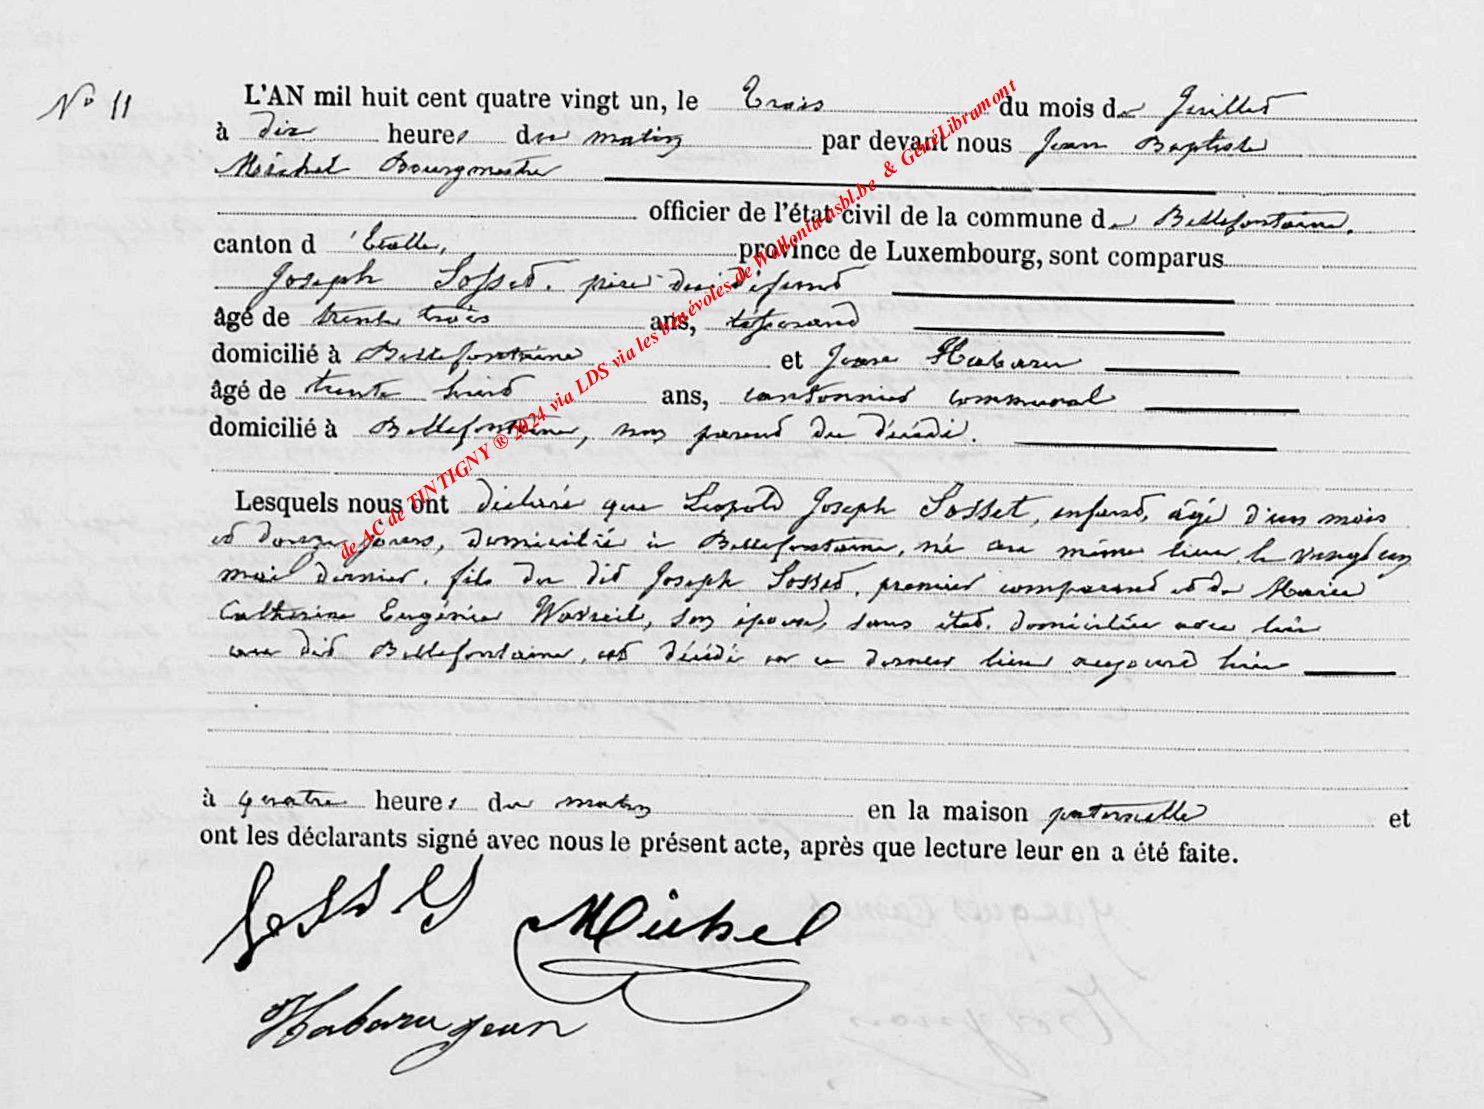 N° 11
L'AN mil huit cent quatre vingt un, le Trois du mois de Juillet
à dix heures du matin par devant nous Jean Baptiste
Michel Bourgmestre
officier de l'état civil de la commune de Bellefontaine,
canton d'Etalle, province de Luxembourg, sont comparus
Joseph Sosset, père du défunt
âgé de trente trois ans,
domicilié à Bellefontaine et Jean Habaru
âgé de trente ans, cantonnier communal
domicilié à Bellefontaine, non parent du décédé.
Lesquels nous ont déclaré que Léopold Joseph Sosset, enfant, âgé d'un mois
et douze jours, domicilié à Bellefontaine, né au même lieu le vingt un
mai dernier, fils du dit Joseph Sosset, premier comparant et de Marie
Catherine Eugénie, son épouse, sans état, domiciliée avec lui
au dit Bellefontaine, est décédé en ce dernier lieu aujourd'hui
à quatre heures du matin en la maison paternelle et
ont les déclarants signé avec nous le présent acte, après que lecture leur en a été faite.
Michel
Habaru Jean
de AC de TINTIGNY ® 2024 via LDS via les bénévoles de Wallonia-asbl.be & GénéLibramont